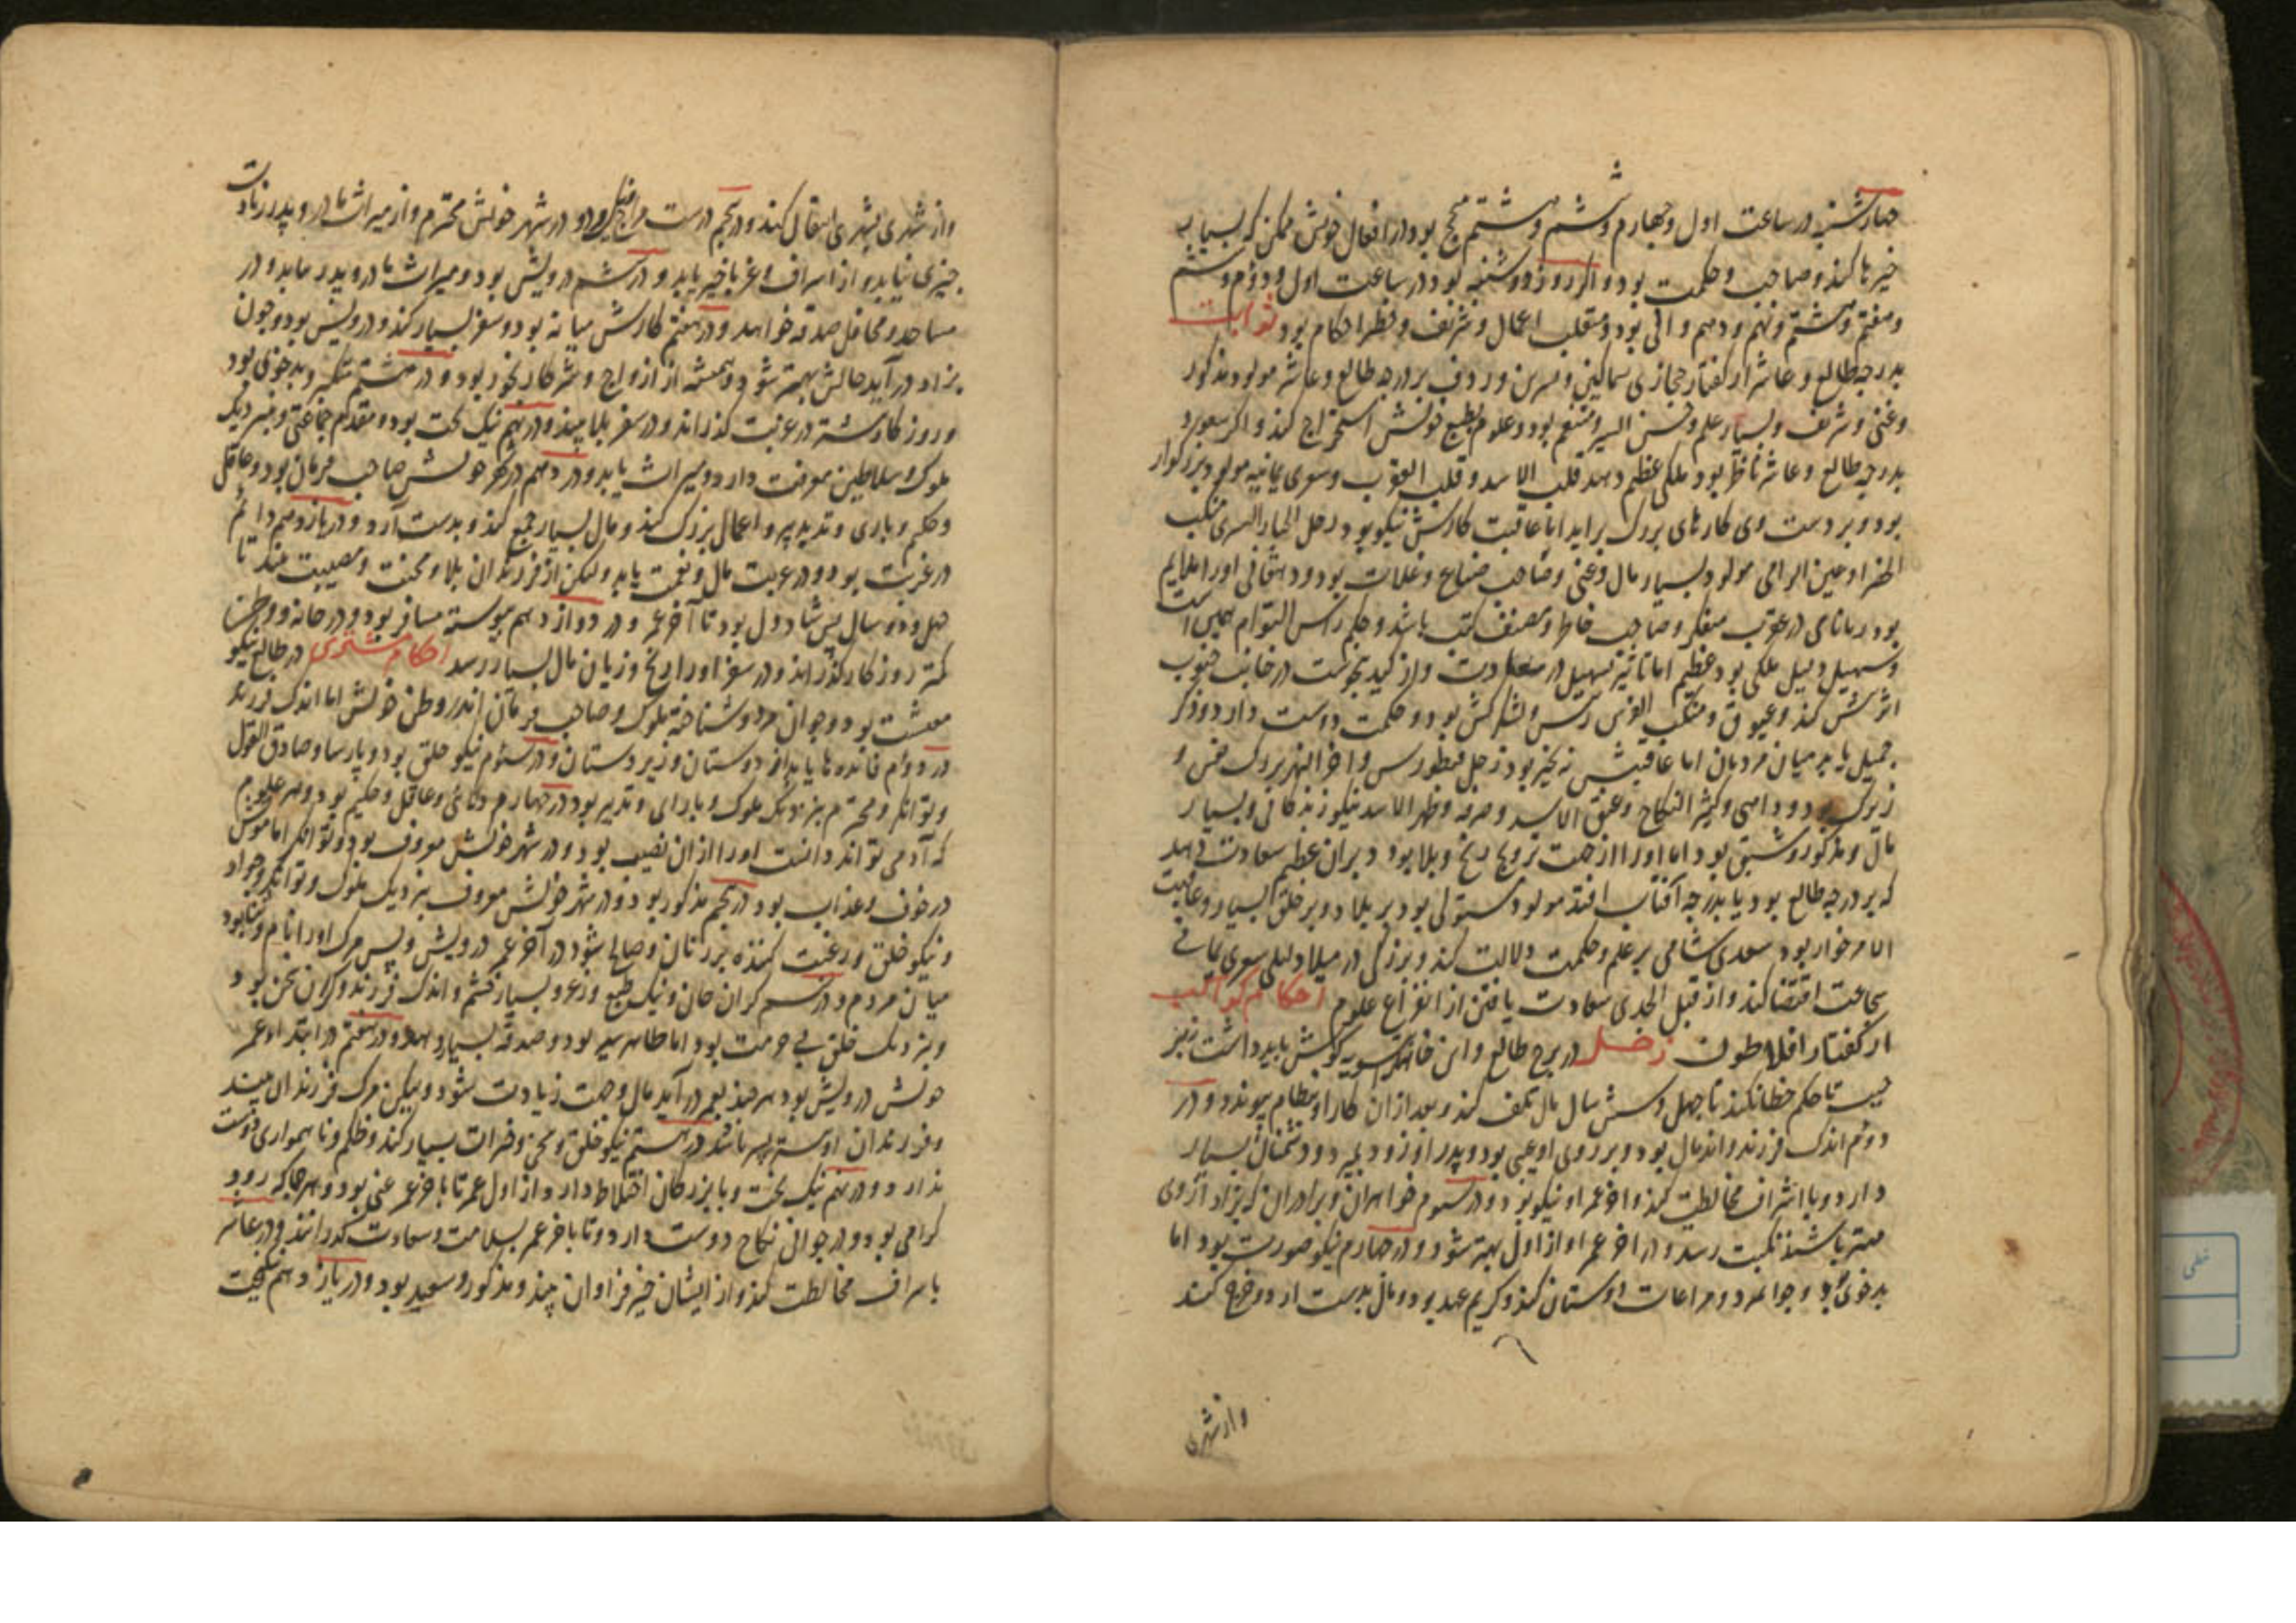 چهارشنبه در ساعت اول و چهارم و ششم و هشتم منجح بود در افعال خویش ممکن که بسیار
خیرها کند و صاحب و حکمت بود و اگر روز دوشنبه بود در ساعت اول و دوم و ششم
و هفتم و هشتم و نهم و دهم و الی بود و متقلب اعمال و شریف و احکام بود ثوابت
بدرجه طالع و عاشر از کفتار حجازی سماکین و نسرین و ردف بر درجه طالع و عاشر مولود مذکور
و غنی و شریف و بسیار علم و حسن السیر و متنعم بود و علوم بطبع خویش استخراج کند و اگر
بدرجه طالع و عاشر ناظر بود ملکی عظیم دهد قلب الاسد و قلب العقرب و شعری یمانیه مولود بزرکوار
بود و بر دست وی کارهای بزرک براید اما عاقبت کارش نیکو بود رجل الجبار الیسری منکب
و عین الرامی مولود بسیار مال و غنی و صاحب ضیاع و غلات بود و دهقانی او را ملایم
بود متفکر و صاحب خاطر و مصنف کتب باشد و حکم راس التوام همین است
و سهیل دلیل ملکی بود عظیم اما تاثیر سهیل در دست و از کید در جانب جنوب
اثرش کند و عیوق و منکب الفرس رئیس و لشکرکش بود و حکمت دوست دارد و ذکر
جمیل یابد میان مردمان اما عاقبتش نه بخیر بود رجل قنطورس و اخر النهر بزرک نفس و
زیرک بود و داهی و کثیر النکاح و عنق الاسد و صرفه و ظهر الاسد نیکو زندکانی و بسیار
مال و مذکور و شبق بود اما او را از جهت تزویج رنج و بلا بود دبران عظیم سعادت دهد
که بر درجه طالع بود یا بدرجه آفتاب افتد مولود مستولی بود بر بلاد و بر خلق بسیار و عاقبت
الامر خوار بود سعدی شامی بر علم و حکمت دلالت کند و بزرکی در میلاد لیلی شعری یمانی
شجاعت اقتضا کند و از قبل الجدی سعادت یافتن از انواع علوم احکام کواکب
از کفتار افلاطون زحل در برج طالع و این خانه تسویه کوش باید داشت نیز
تا حکم خطا نکند تا چهل و شش سال مال تلف کند و بعد از آن کار او بنظام پیوندد و در
دوم اندک فرزند و اندک مال بود و بر روی او عیبی بود و پدر او زود بمیرد و دشمنان بسیار
دارد و با اشراف مخالطت کند و اخر عمر او نیکو بود و در سوم خواهران و برادران که بزاد از وی
مهتر باشند نکبت رسد و در اخر عمر او از اول بهتر شود و در چهارم نیکو صورت بود اما
بدخوی بود و جوانمرد و مراعات دوستان کند و کریم عهد بود و مال بدست آرد و خرج کند
و از شهری
و از شهری بشهری انتقال کند و در پنجم درست مزاج بود در شهر خویش محترم و از میراث مادر و پدر زیادت
چیزی نیابد و از اسراف و غربا خیر یابد و در ششم درویش بود و میراث مادر و پدر نیابد و در
مساجد و محافل صدقه خواهد و در هفتم کارش میانه بود و سفر بسیار کند و درویش بود و چون
بزاد درآید حالش بهتر شود و همیشه از ازواج و شرکا رنجور بود و در هشتم متکبر و بدخوی بود
و روزکار کشته در غربت کذراند و در سفر بلا بیند و در نهم نیک بخت بود و مقدم جماعتی و نزدیک
ملوک و سلاطین معرفت دارد و میراث یابد و در دهم در شهر خویش صاحب فرمان بود و عاقل
و حکیم و با رای و تدبیر و اعمال بزرک کند و مال بسیار جمع کند و بدست آرد و در یازدهم دائم
در غربت بود و در غربت مال و نعمت یابد ولیکن از فرزندان بلا و محنت و مصیبت بیند تا
چهل و دو سال پس شاد دل بود تا آخر عمر و در دوازدهم پیوسته مسافر بود و در خانه و وطن
کمتر روزکار کذراند و در سفر او را رنج و زیان مال بسیار رسد احکام مشتری در طالع نیکو
معیشت بود و جوانمرد و شناخته ملوک و صاحب فرمان اندر وطن خویش اما اندک فرزند
در دوم فایده‌ها یابد از دوستان و زیردستان و در سئوم نیکو خلق بود و پارسا و صادق القول
و توانکر و محترم بنزدیک ملوک و با رای و تدبیر بود در چهارم دانای و عاقل و حکیم بود و هر علوم
که آدمی تواند دانست او را از آن نصیب بود و در شهر خویش معروف بود و توانکر اما موتش
در خوف و عذاب بود در پنجم مذکور بود و در شهر خویش معروف بنزدیک ملوک و توانکر و جواد
و نیکو خلق و رغبت کننده بر زنان و صالح شود در آخر عمر درویش و پس مرک او را نام و ثنا بود
میان مردم و در ششم کران جان و نیک طبع و بسیار خشم و اندک فرزند و کران سخن بود
و بنزدیک خلق بی حرمت بود اما طاهر بود و صدقه بسیار دهد و در هفتم در ابتدا و عمر
خویش درویش بود هر چند بعمر درآید مال و حشمت زیادت شود ولیکن مرک فرزندان بیند
و فرزندان او بسته پسر باشند در هشتم نیکو خلق و سخی و خیرات بسیار کند و ظلم و ناهمواری دوست
ندارد و در نهم نیک بخت و با بزرکان اختلاط دارد و از اول عمر تا باخر عمر غنی بود و هر جا که رود
کرامی بود و در جوانی نکاح دوست دارد و تا باخر عمر بسلامت و سعادت کذراند و در عاشر
با اشراف مخالطت کند و از ایشان خیر فراوان بیند و مذکور و سعید بود و در یازدهم نیکبخت